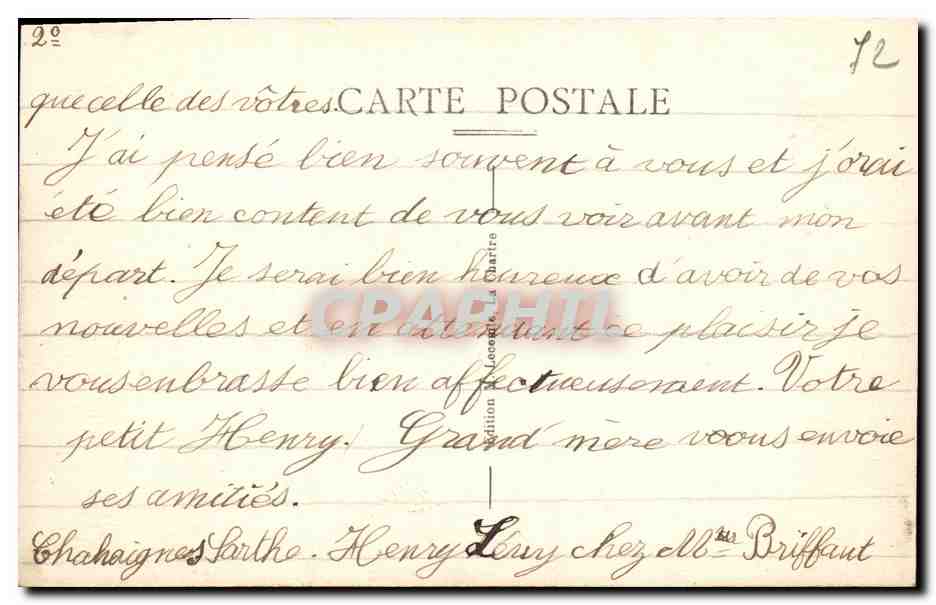 2º
72
que celle des vôtres. CARTE POSTALE
J'ai pensé bien souvent à vous et j'orai
été bien content de vous voir avant mon
départ. Je serai bien heureux d'avoir de vos
nouvelles et en attendant ce plaisir je
vous enbrasse bien affectueusement. Votre
petit Henry. Grand mère voous envoie
ses amitiés.
Chahaignes Sarthe. Henry chez Briffaut
Edition Lecomte, La Chartre
CPARHTI